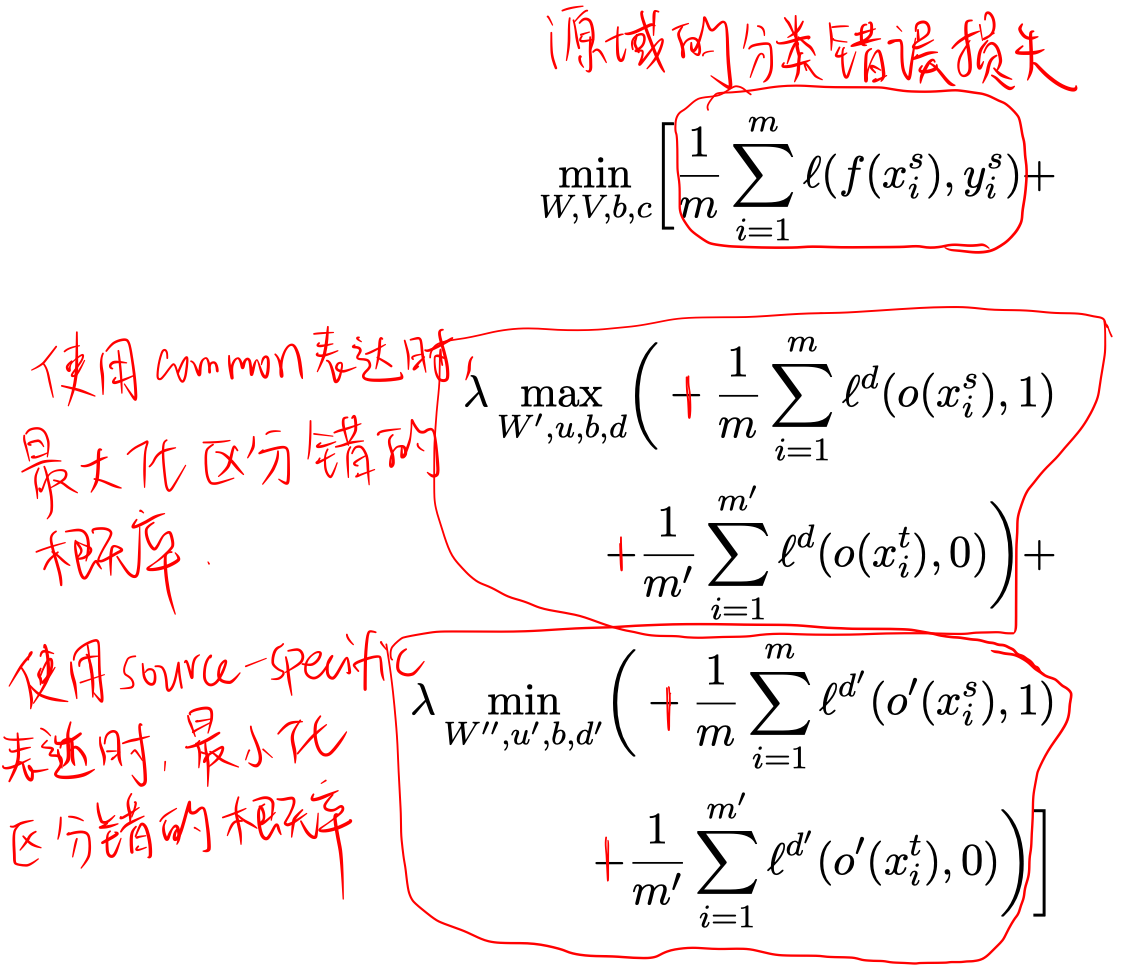 源域的分类错误损失
\min_{W,V,b,c} \left[ \frac{1}{m} \sum_{i=1}^{m} \ell(f(x_i^s), y_i^s) +
使用common表达时,
最大化区分错的
概率.
\lambda \max_{W',u,b,d} \left( + \frac{1}{m} \sum_{i=1}^{m} \ell^d(o(x_i^s), 1)
+ \frac{1}{m'} \sum_{i=1}^{m'} \ell^d(o(x_i^t), 0) \right) +
使用source-specific
表达时,最小化
区分错的概率
\lambda \min_{W'',u',b,d'} \left( + \frac{1}{m} \sum_{i=1}^{m} \ell^{d'}(o'(x_i^s), 1)
+ \frac{1}{m'} \sum_{i=1}^{m'} \ell^{d'}(o'(x_i^t), 0) \right) \right]